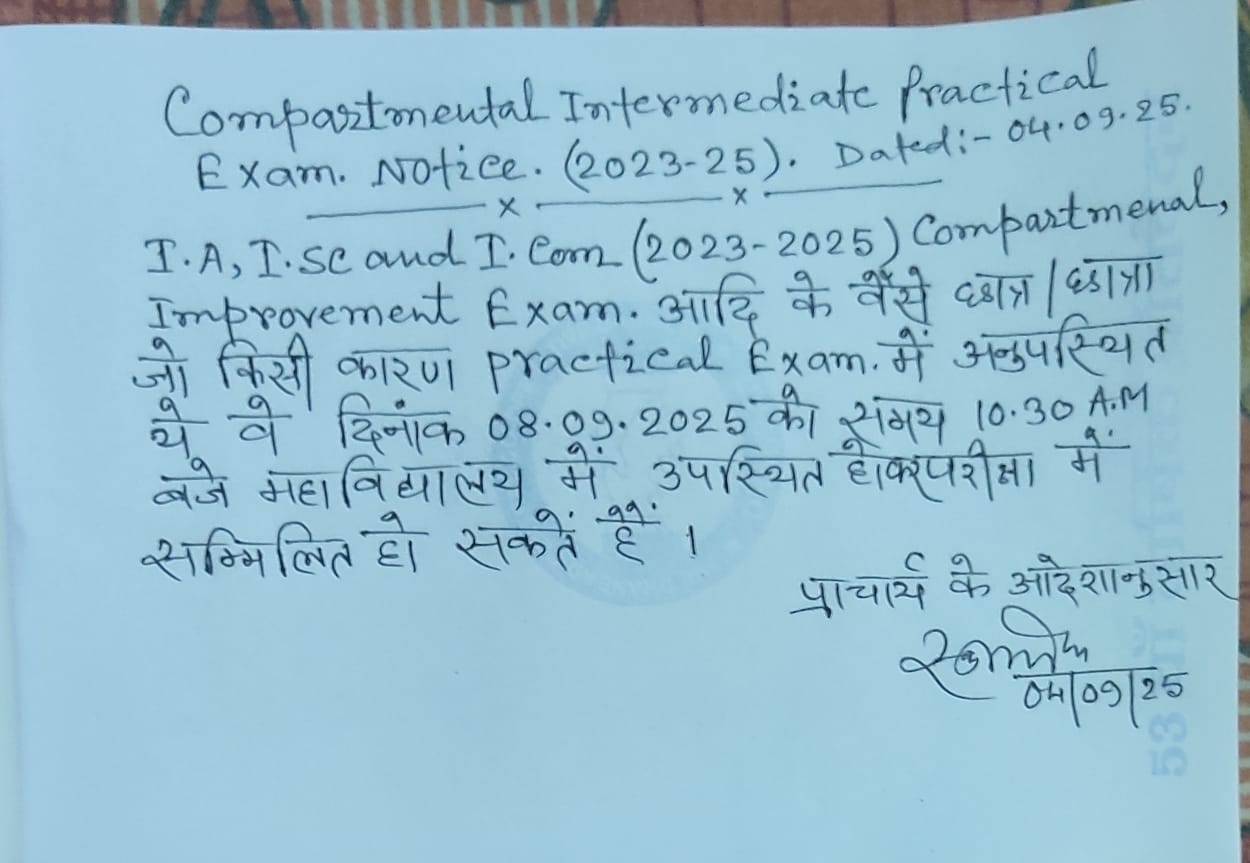 Compartmental Intermediate Practical
Exam. Notice. (2023-25). Dated:- 04.09.25.
x x
I.A, I.SC and I.Com (2023-2025) Compartmenal,
Improvement Exam. आदि के वैसे छात्र/छात्रा
जो किसी कारण practical Exam. में अनुपस्थित
थे वे दिनांक 08.09.2025 को समय 10.30 A.M
बजे महाविद्यालय में उपस्थित होकर परीक्षा में
सम्मिलित हो सकतें हैं ।
प्राचार्य के आदेशानुसार
04/09/25
53